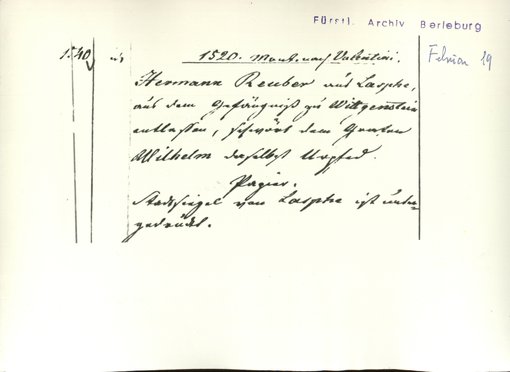 Fürstl. Archiv Berleburg
1540
1520. Mont. nach Valentini.
Februar 19
Hermann Reuber aus Lasphe,
aus dem Gefängniß zu Wittgenstein
entlassen, schwört dem Grafen
Wilhelm daselbst Urpfed.
Papier.
Stadtsiegel von Lasphe ist unter-
gedrückt.